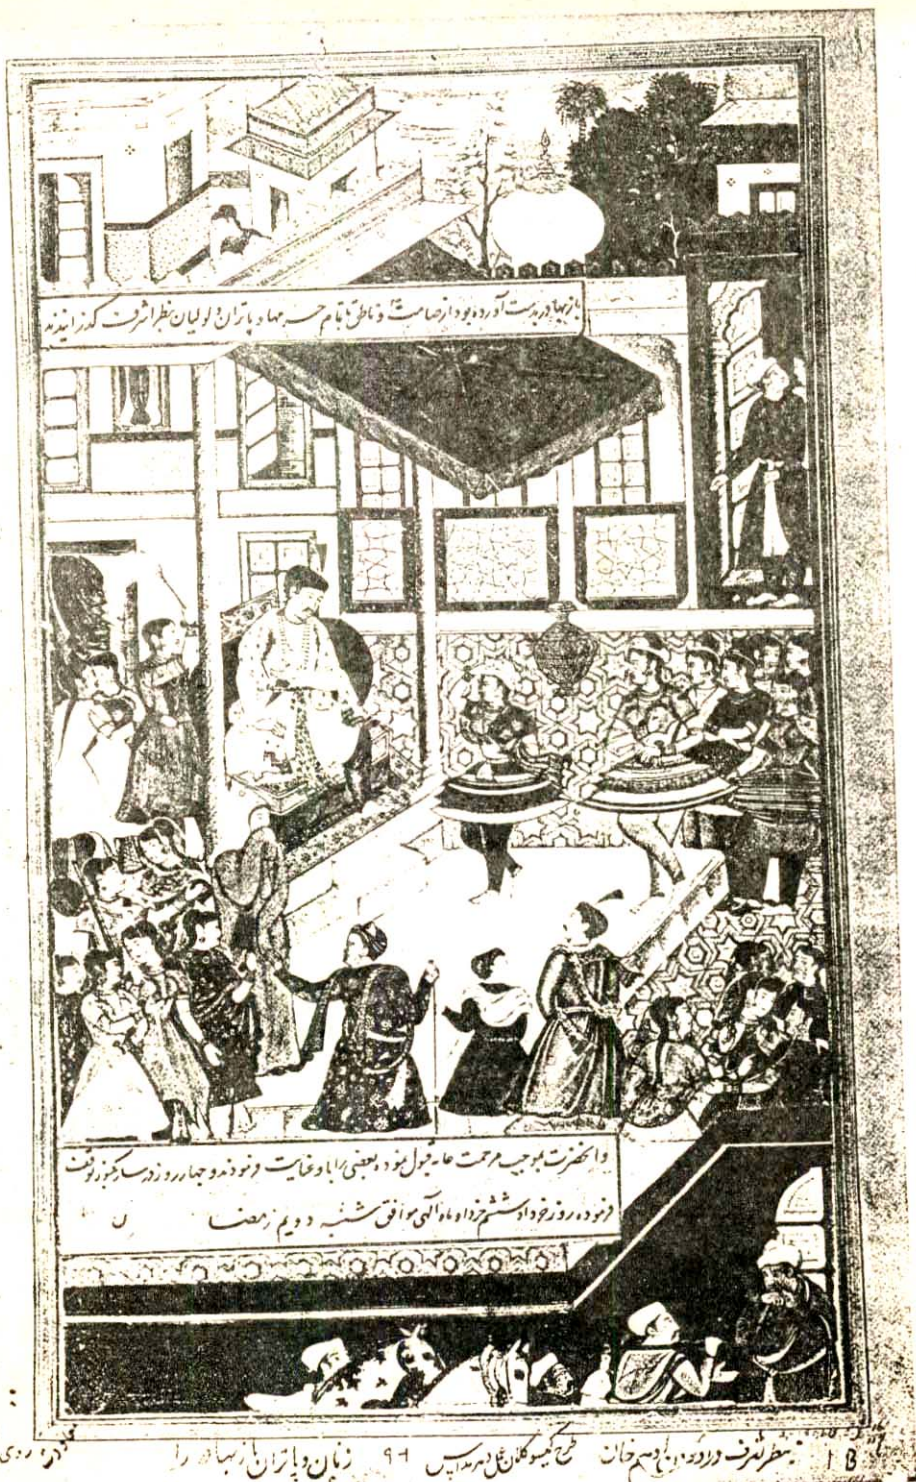 باز بهادر بدست آورده بود از صامت و ناطق با تمام حسر مها و پاتران و لولیان بنظر اشرف گذرانیدند
و آنحضرت بموجب مرحمت عام قبول نموده بعضی را باو عنایت فرمودند و چهار روز در سارنگپور توقف
فرموده روز خرداد ششم خرداد ماه الهی موافق شنبه دویم رمضان
بنظر اشرف در آوردن ادهم خان زنان و پاتران باز بهادر را
طرح کیسو کلان عمل دهرمداس
۹۹
18